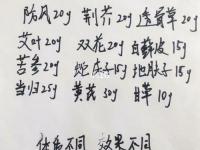 防风20g 荆芥20g 透骨草20g
艾叶20g 双花20g 白鲜皮15g
苦参20g 蛇床子15g 地肤子15g
当归25g 黄芪30g 甘草10g
体质不同 效果不同